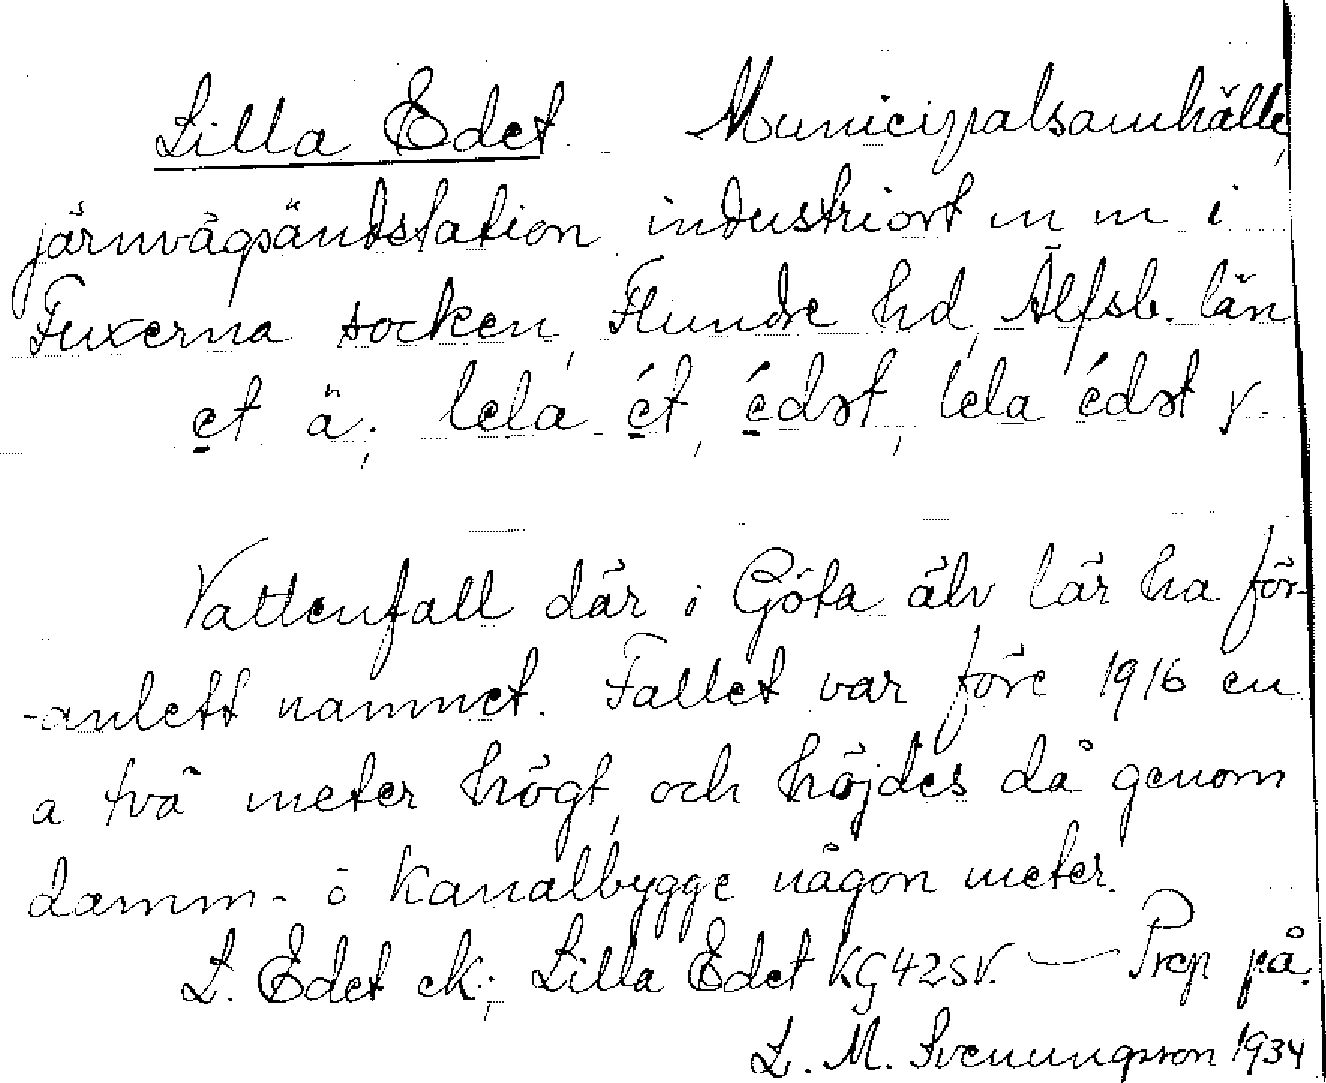 Lilla Edet. Municipalsamhälle,
järnvägsändstation industriort m m i
Fuxerna socken, Flundre hd, Älfsb. län
et ä; lela ét, édət, lela édət v.
Vattenfall där i Göta älv lär ha för-
-anlett namnet. Fallet var före 1916 en
a två meter högt, och höjdes då genom
damm- o kanalbygge någon meter.
L. Edet ek; Lilla Edet KG42SV. — Prep på.
L. M. Svenungsson 1934